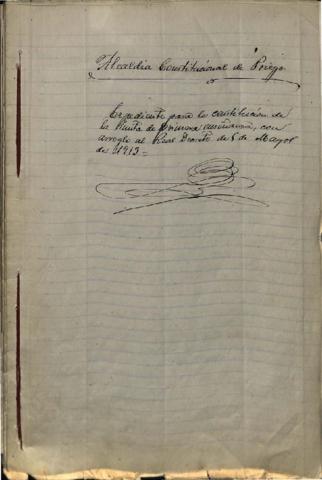 Alcaldía Constitucional de Priego
Expediente para la constitución de
la Junta de primera enseñanza, con
arreglo al Real Decreto de 5 de Mayo
de 1913=